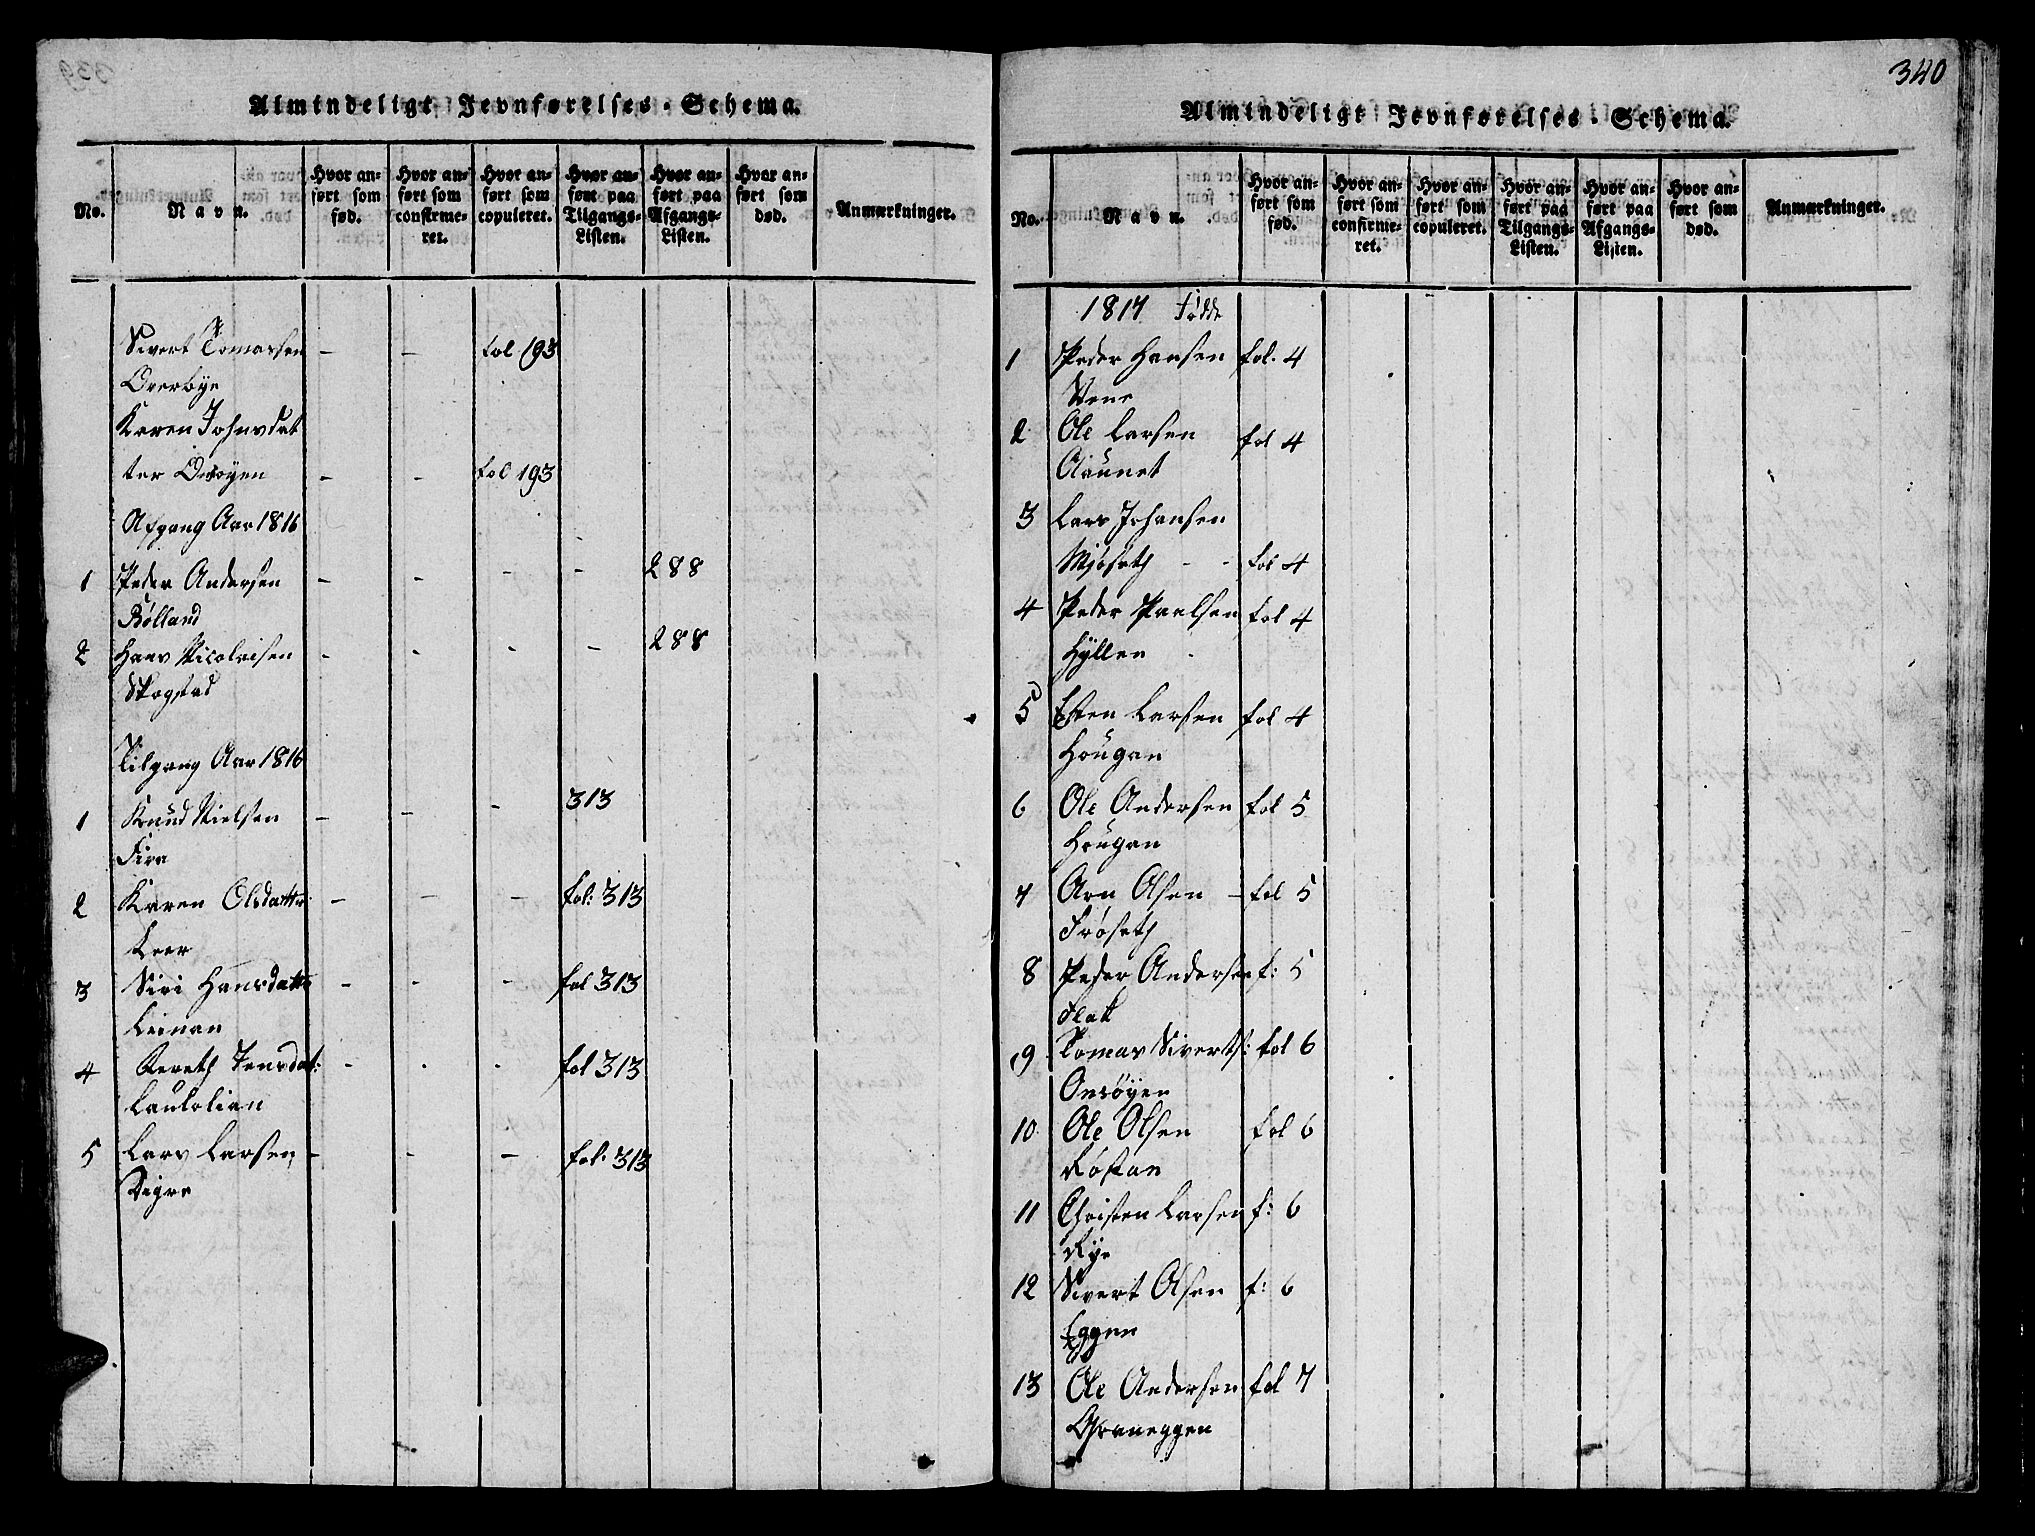 Almindeligt Jevnførelses-Schema.
No. Navn. Hvor anført som fød. Hvor anført som confirmeret. Hvor anført som copuleret. Hvor anført paa Tilgangs-Listen. Hvor anført paa Afgangs-Listen. Hvor anført som død. Anmærkninger.
Sivert Tomassen - - fol 193
Overbye
Karen Johnsdat
ter Overøyen - - fol 193
Afgang Aar 1816
1 Peder Andersen - - - - 288
Bølland
2 Hans Nicolaisen - - - - 288
Skogstad
Tilgang Aar 1816
1 Knud Nielsen - - - 313
2 Karen Olsdatter - - - fol: 313
3 Siri Hansdatter - - - fol 313
Leinan
4 Bereth Jensdat: - - - fol 313
Lauklian
5 Lars Larsen - - - fol: 313
Digre
340
Almindeligt Jevnførelses-Schema.
No. Navn. Hvor anført som fød. Hvor anført som confirmeret. Hvor anført som copuleret. Hvor anført paa Tilgangs-Listen. Hvor anført paa Afgangs-Listen. Hvor anført som død. Anmærkninger.
1817 Fødde
1 Peder Hansen fol. 4
Stene
2 Ole Larsen fol 4
Aaunet
3 Lars Johansen
Mjøseth - - fol 4
4 Peder Paulsen fol 4
Hyllen
5 Esten Larsen fol 4
Hougan
6 Ole Andersen fol 5
Hougan
7 Arn Olsen - fol 5
Frøseth
8 Peder Andersen f: 5
Flatt
9 Tomas Siverts: fol 6
Onsøyen
10 Ole Olsen fol 6
Røstan
11 Christen Larsen f: 6
Rye
12 Sivert Olsen f: 6
Eggen
13 Ole Andersen fol 7
Graneggen